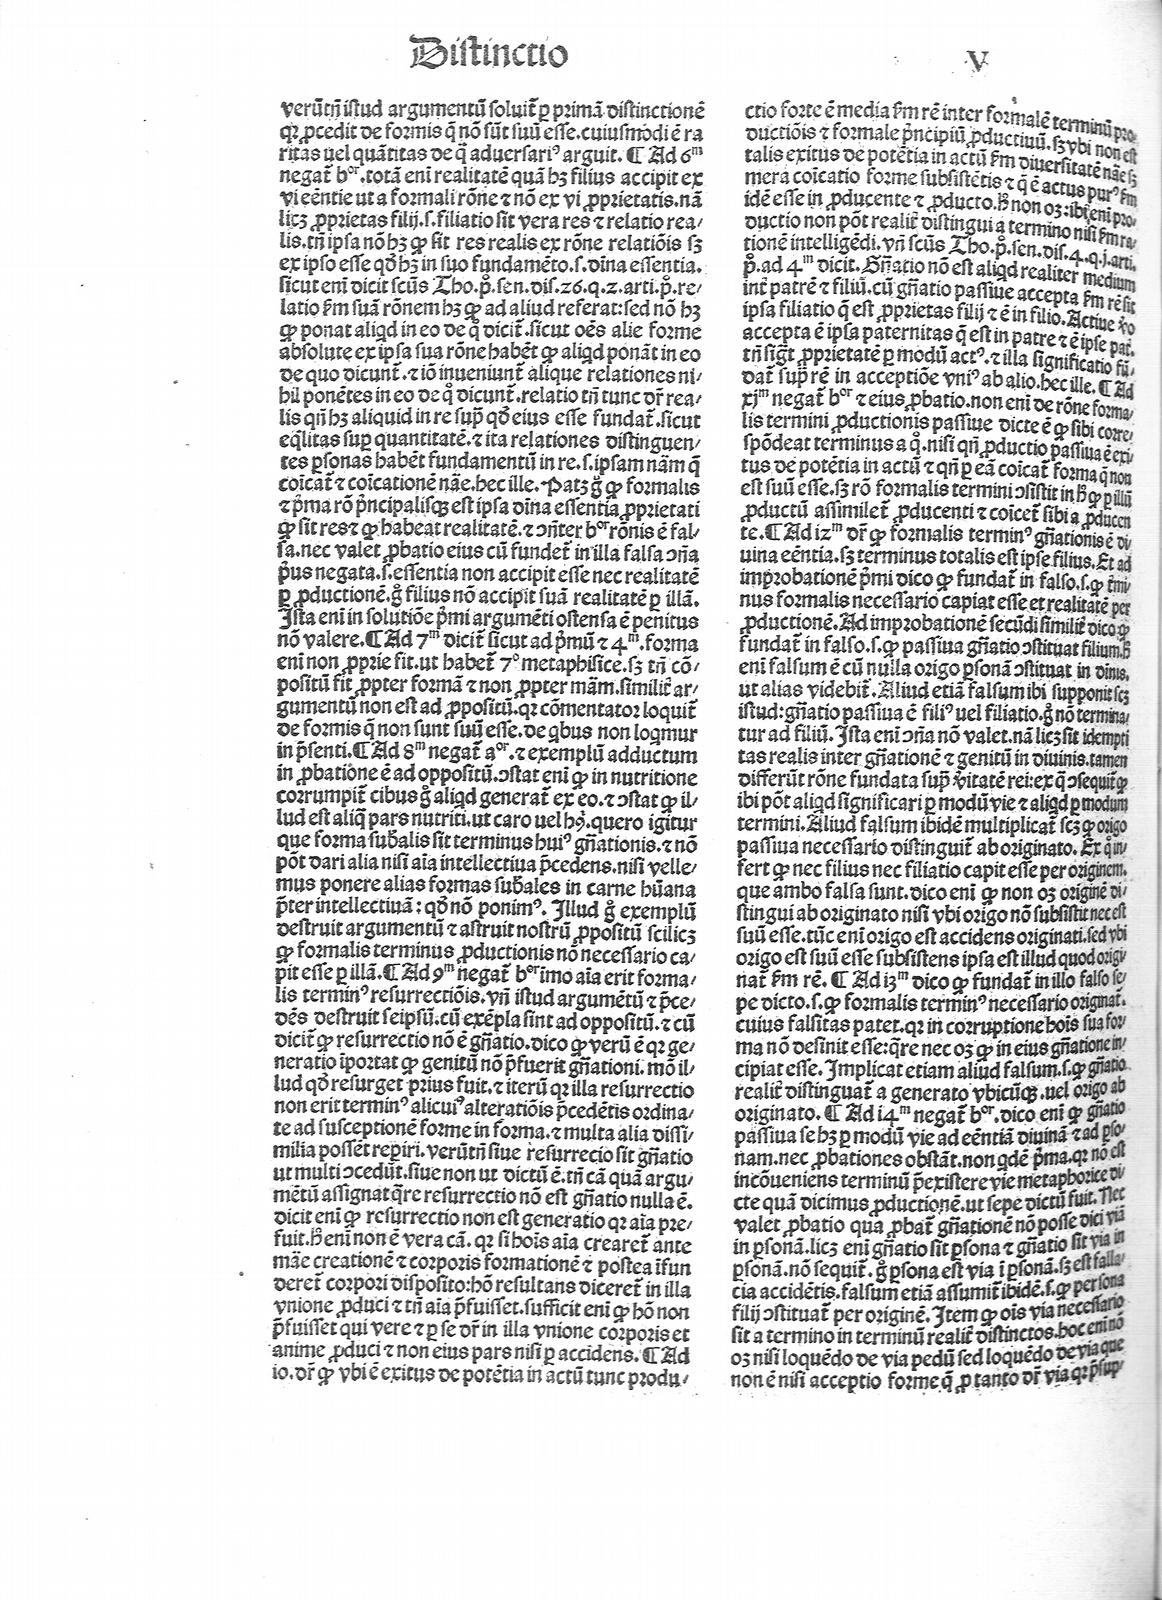 Distinctio V
verūtñ istud argumentū soluit̃ ꝑ primā distinctionē
qꝛ ꝓcedit de formis q̄ nō sūt suū esse.cuiusmodi ē ra
ritas uel quātitas de q̄ aduersariꝰ arguit. ¶ Ad 6ᵐ
negat̃ bᵒʳ.totā eni realitatē quā hꝫ filius accipit ex
vi eēntie ut a formali rōne ⁊ nō ex vi ꝓprietatis.nā
licꝫ ꝓprietas filij.s.filiatio sit vera res ⁊ relatio rea/
lis.tñ ipsa nō hꝫ ꝙ sit res realis ex rōne relatiōis sꝫ
ex ipso esse qd̄ hꝫ in suo fundamēto.s.diña essentia.
sicut eni dicit scūs Tho.p̊.sen.dis.26.q.2.arti.p̊.re/
latio s̄m suā rōnem hꝫ ꝙ ad aliud referat̃:sed nō hꝫ
ꝙ ponat aliqd in eo de q̊ dicit̃.sicut oēs alie forme
absolute ex ipsa sua rōne habēt ꝙ aliqd ponāt in eo
de quo dicunt̃.⁊ iō inueniunt̃ alique relationes ni/
hil ponētes in eo de q̊ dicunt̃.relatio tñ tunc dr̄ rea/
lis qñ hꝫ aliquid in re sup̱ qd̄ eius esse fundat̃.sicut
eq̄litas sup̱ quantitatē.⁊ ita relationes distinguen/
tes ꝑsonas habēt fundamentū in re.s.ipsam nām q̄
coīcat̃ ⁊ coīcationē nāe.hec ille. Patꝫ g̊ ꝙ formalis
⁊ p̄ma rō p̄ncipalisqꝫ est ipsa diña essentia ꝓprietati
ꝙ sit res ⁊ ꝙ habeat realitatē.⁊ ɔñter bᵒʳ rōnis ē fal/
sa.nec valet ꝓbatio eius cū fundet̃ in illa falsa ɔña
p̄us negata.s.essentia non accipit esse nec realitatē
ꝑ ꝓductionē.g̊ filius nō accipit suā realitatē ꝑ illā.
Ista eni in solutiōe p̄mi argumēti ostensa ē penitus
nō valere.¶ Ad 7ᵐ dicit̃ sicut ad p̄mū ⁊ 4ᵐ.forma
eni non ꝓprie fit.ut habet̃ 7º metaphisice.sꝫ tñ cō/
positū fit ꝓpter formā ⁊ non ꝓpter mām.similit̃ ar/
gumentū non est ad ꝓpositū.qꝛ cōmentatoꝛ loquit̃
de formis q̄ non sunt suū esse.de qbus non loqmur
in p̄senti.¶ Ad 8ᵐ negat̃ aᵒʳ.⁊ exemplū adductum
in ꝓbatiōne ē ad oppositū.ɔstat eni ꝙ in nutritione
corrumpit̃ cibus g̊ aliqd generat̃ ex eo.⁊ ɔstat ꝙ il/
lud est aliq̄ pars nutriti.ut caro uel hꝰ.quero igit̃ur
que forma subālis sit terminus huiꝰ gñationis.⁊ nō
pōt dari alia nisi aīa intellectiua p̄cedens.nisi velle/
mus ponere alias formas subāles in carne hūana
p̄ter intellectiuā:qd̄ nō ponimꝰ. Illud g̊ exemplū
destruit argumentū ⁊ astruit nostrū ꝓpositū scilicꝫ
ꝙ formalis terminus ꝓductionis nō necessario ca/
pit esse ꝑ illā.¶ Ad 9ᵐ negat̃ bᵒʳ imo aīa erit forma/
lis terminꝰ resurrectiōis.vñ istud argumētū ⁊ p̄ce/
dēs destruit seipsū.cū exēpla sint ad oppositū.⁊ cū
dicit̃ ꝙ resurrectio nō ē gñatio.dico ꝙ verū ē qꝛ ge/
neratio īportat ꝙ genitū nō p̄fuerit gñationi. mō il/
lud qd̄ resurget prius fuit.⁊ iterū qꝛ illa resurrectio
non erit terminꝰ alicuiꝰ alteratiōis p̄cedētis ordina/
te ad susceptionē forme in forma.⁊ multa alia dissi/
milia possēt reꝑiri.verūtñ siue resurrecio sit gñatio
ut multi ɔcedūt.siue non ut dictū ē.tñ cā quā argu/
mētū assignat q̄re resurrectio nō est gñatio nulla ē.
dicit eni ꝙ resurrectio non est generatio qꝛ aīa pre/
fuit.h̄ eni non ē vera cā. qꝛ si hoīs aīa crearet̃ ante
māe creationē ⁊ corporis formationē ⁊ postea īfun
deret̃ corpori disposito:hō resultans diceret̃ in illa
vnione ꝓduci ⁊ tñ aīa p̄fuisset.sufficit eni ꝙ hō non
p̄fuisset qui vere ⁊ ꝑ se dr̄ in illa vnione corporis et
anime ꝓduci ⁊ non eius pars nisi ꝑ accidens. ¶ Ad
10.dr̄ ꝙ vbi ē exitus de potētia in actū tunc produ/
ctio forte ē media s̄m rē inter formalē terminū pro/
ductiōis ⁊ formale p̄ncipiū ꝓductiuū.sꝫ vbi non est
talis exitus de potētia in actū s̄m diuersitatē nāe sꝫ
mera coīcatio forme subsistētis ⁊ q̄ ē actus purꝰ s̄m
idē esse in ꝓducente ⁊ ꝓducto.h̄ non oꝫ:ibi eni pro/
ductio non pōt realit̃ distingui a termino nisi s̄m ra/
tionē intelligēdi.vñ scūs Tho.p̊.sen.dis.4.q.1.arti.
p̊.ad 4ᵐ dicit. Gñatio nō est aliqd realiter medium
int̃ patrē ⁊ filiū.cū gñatio passiue accepta s̄m rē sit
ipsa filiatio q̄ est ꝓprietas filij ⁊ ē in filio. Actiue v̊o
accepta ē ipsa paternitas q̄ est in patre ⁊ ē ipse pat̃.
tñ sigt̃ ꝓprietatē ꝑ modū actꝰ.⁊ illa significatio fū/
dat̃ sup̱ rē in acceptiōe vniꝰ ab alio.hec ille. ¶ Ad
xjᵐ negat̃ bᵒʳ ⁊ eius ꝓbatio.non eni de rōne forma/
lis termini ꝓductionis passiue dicte ē ꝙ sibi corre/
spōdeat terminus a q̊.nisi qñ ꝓductio passiua ē exi/
tus de potētia in actū ⁊ qñ ꝑ eā coīcat̃ forma q̄ non
est suū esse.sꝫ rō formalis termini ɔsistit in h̄ ꝙ ꝑ illū
ꝓductū assimilet̃ ꝓducenti ⁊ coīcet̃ sibi a ꝓducen
te.¶ Ad 12ᵐ dr̄ ꝙ formalis terminꝰ gñationis ē di/
uina eēntia.sꝫ terminus totalis est ipse filius. Et ad
improbationē p̄mi dico ꝙ fundat̃ in falso.s.ꝙ t̃mi/
nus formalis necessario capiat esse et realitatē per
ꝓductionē.Ad improbationē secūdi similit̃ dico ꝙ
fundat̃ in falso.s.ꝙ passiua gñatio ɔstituat filium.h̄
eni falsum ē cū nulla origo ꝑsonā ɔstituat in diñis,
ut alias videbit̃.Aliud etiā falsum ibi supponit scꝫ
istud:gñatio passiua ē filiꝰ uel filiatio.g̊ nō termina/
tur ad filiū. Ista eni ɔña nō valet.nā licꝫ sit idempti
tas realis inter gñationē ⁊ genitū in diuinis.tamen
differūt rōne fundata sup̱ v̊itatē rei:ex q̊ ɔsequit̃ ꝙ
ibi pōt aliqd significari ꝑ modū vie ⁊ aliqd ꝑ modum
termini.Aliud falsum ibidē multiplicat̃ scꝫ ꝙ origo
passiua necessario distinguit̃ ab originato. Ex q̊ in/
fert ꝙ nec filius nec filiatio capit esse per originem.
que ambo falsa sunt.dico eni ꝙ non oꝫ originē di/
stingui ab originato nisi vbi origo nō subsistit nec est
suū esse.tūc eni origo est accidens originati.sed vbi
origo est suū esse subsistens ipsa est illud quod origi/
nat̃ s̄m rē. ¶ Ad 13ᵐ dico ꝙ fundat̃ in illo falso se/
pe dicto.s.ꝙ formalis terminꝰ necessario originat̃.
cuius falsitas patet.qꝛ in corruptione hoīs sua for/
ma nō desinit esse:q̄re nec oꝫ ꝙ in eius gñatione in/
cipiat esse. Implicat etiam aliud falsum.s.ꝙ gñatio
realit̃ distinguat̃ a generato vbicūqꝫ.uel origo ab
originato. ¶ Ad 14ᵐ negat̃ bᵒʳ.dico eni ꝙ gñatio
passiua se hꝫ ꝑ modū vie ad eēntiā diuinā ⁊ ad ꝑso/
nam.nec ꝓbationes obstāt.non qdē p̄ma.qꝛ nō est
incōueniens terminū p̄existere vie metaphorice di/
cte quā dicimus ꝓductionē.ut sepe dictū fuit. Nec
valet ꝓbatio qua ꝓbat̃ gñationē nō posse dici viā
in ꝑsonā.licꝫ eni gñatio sit ꝑsona ⁊ gñatio sit via in
ꝑsonā.nō sequit̃. g̊ ꝑsona est via ī ꝑsonā.sꝫ est falla/
cia accidētis.falsum etiā assumit̃ ibidē.s.ꝙ persona
filij ɔstituat̃ per originē. Item ꝙ oīs via necessario
sit a termino in terminū realit̃ distinctos.hoc eni nō
oꝫ nisi loquēdo de via pedū sed loquēdo de via que
non ē nisi acceptio forme q̄ ꝓ tanto dr̄ via qꝛ p̄sup/